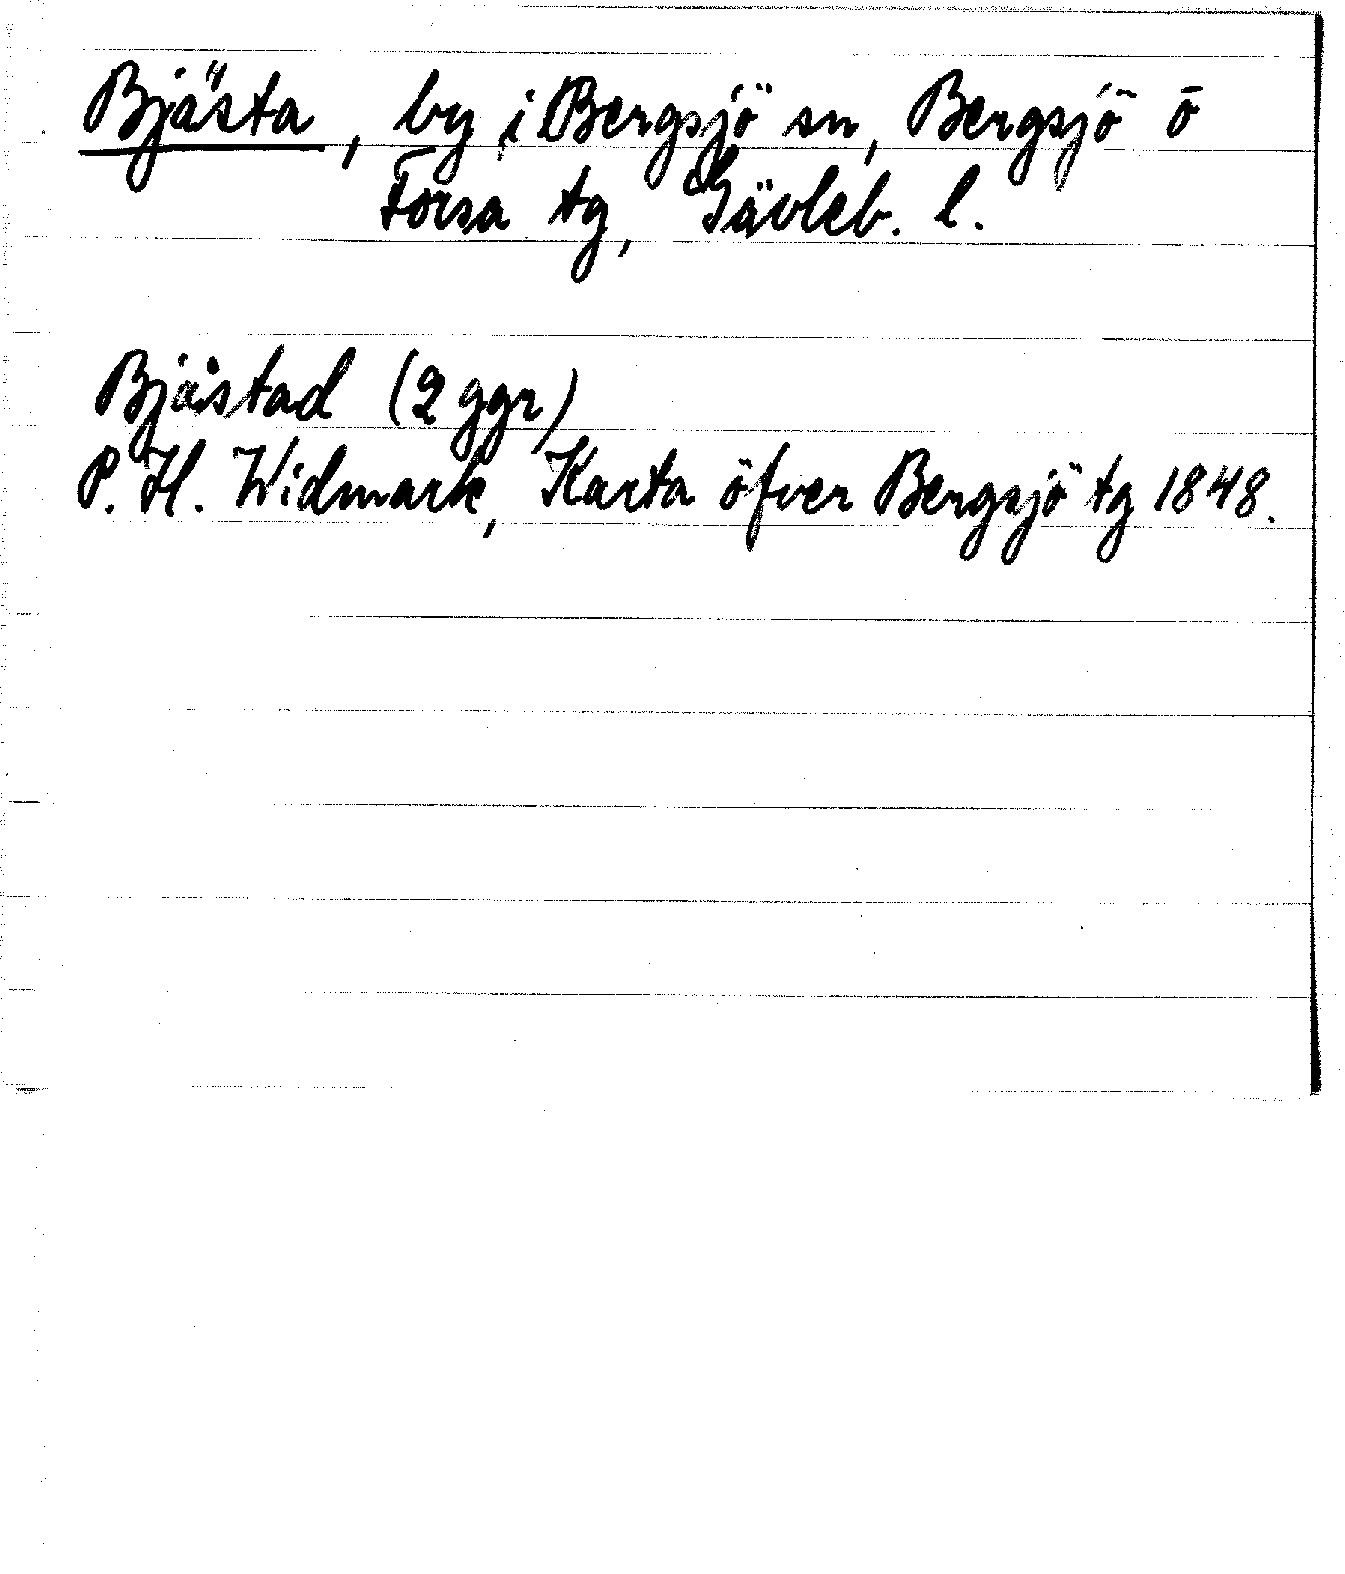 Bjästa, by i Bergsjö sn, Bergsjö o
Forsa tg, Gävleb. l.
Bjåstad (2 ggr)
P. H. Widmark, Karta öfver Bergsjö tg 1848.